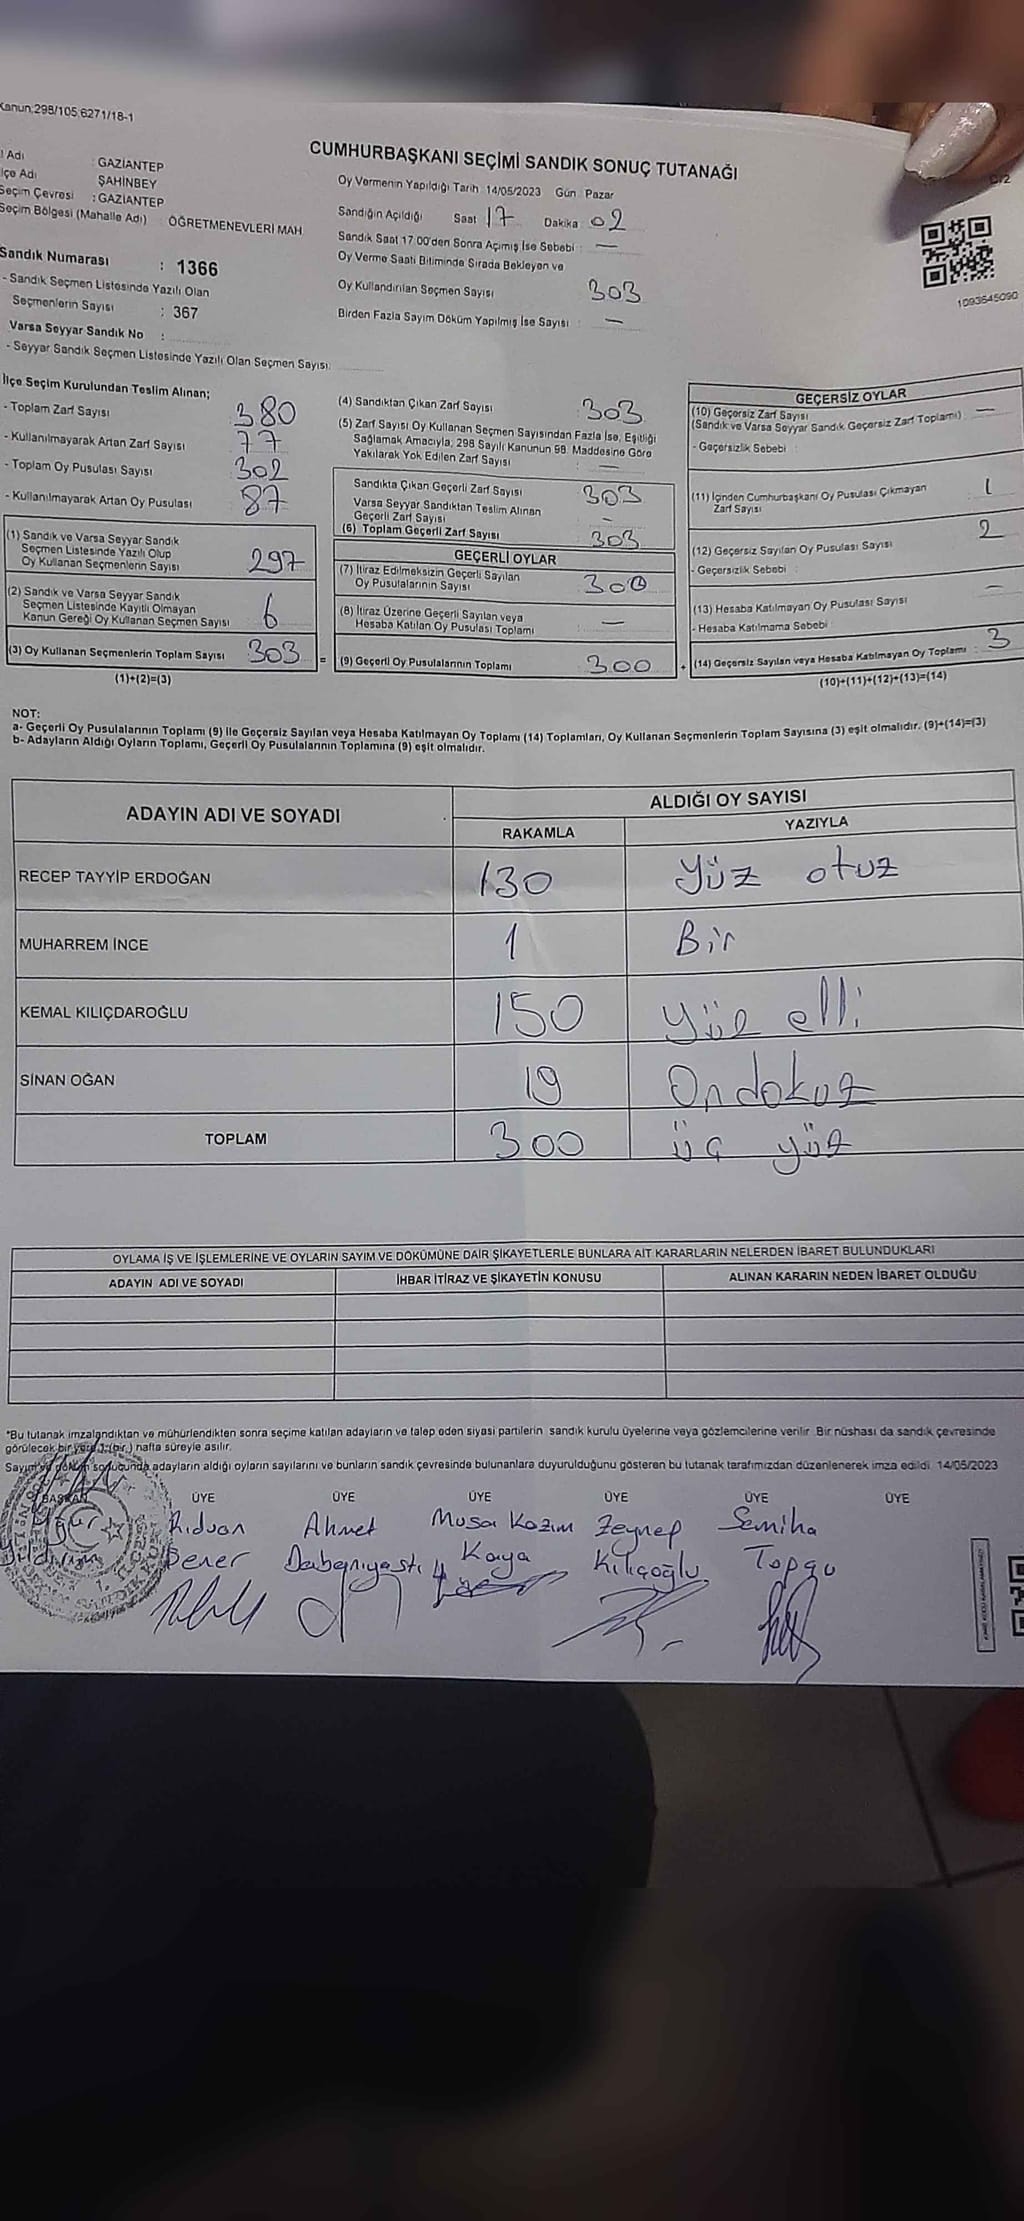 Kanun;298/105;6271/18-1
CUMHURBAŞKANI SEÇİMİ SANDIK SONUÇ TUTANAĞI
C/2
l Adı : GAZİANTEP
lçe Adı ŞAHİNBEY
Seçim Çevresi : GAZİANTEP
Seçim Bölgesi (Mahalle Adı) : ÖĞRETMENEVLERİ MAH
Sandık Numarası : 1366
- Sandık Seçmen Listesinde Yazılı Olan
Seçmenlerin Sayısı : 367
Varsa Seyyar Sandık No :
- Seyyar Sandık Seçmen Listesinde Yazılı Olan Seçmen Sayısı:
Oy Vermenin Yapıldığı Tarih 14/05/2023 Gün : Pazar
Sandığın Açıldığı Saat 17 Dakika : 02
Sandık Saat 17:00'den Sonra Açılmış İse Sebebi : —
Oy Verme Saati Bitiminde Sırada Bekleyen ve
Oy Kullandırılan Seçmen Sayısı 303
Birden Fazla Sayım Döküm Yapılmış İse Sayısı : —
1093645090
İlçe Seçim Kurulundan Teslim Alınan;
- Toplam Zarf Sayısı 380
- Kullanılmayarak Artan Zarf Sayısı 77
- Toplam Oy Pusulası Sayısı 302
- Kullanılmayarak Artan Oy Pusulası 87
(1) Sandık ve Varsa Seyyar Sandık
Seçmen Listesinde Yazılı Olup
Oy Kullanan Seçmenlerin Sayısı 297
(2) Sandık ve Varsa Seyyar Sandık
Seçmen Listesinde Kayıtlı Olmayan
Kanun Gereği Oy Kullanan Seçmen Sayısı 6
(3) Oy Kullanan Seçmenlerin Toplam Sayısı 303 =
(1)+(2)=(3)
(4) Sandıktan Çıkan Zarf Sayısı : 303
(5) Zarf Sayısı Oy Kullanan Seçmen Sayısından Fazla İse, Eşitliği
Sağlamak Amacıyla, 298 Sayılı Kanunun 98. Maddesine Göre
Yakılarak Yok Edilen Zarf Sayısı : —
Sandıkta Çıkan Geçerli Zarf Sayısı : 303
Varsa Seyyar Sandıktan Teslim Alınan
Geçerli Zarf Sayısı -
(6) Toplam Geçerli Zarf Sayısı : 303
GEÇERLİ OYLAR
(7) İtiraz Edilmeksizin Geçerli Sayılan
Oy Pusulalarının Sayısı : 300
(8) İtiraz Üzerine Geçerli Sayılan veya
Hesaba Katılan Oy Pusulası Toplamı : —
(9) Geçerli Oy Pusulalarının Toplamı : 300 +
GEÇERSİZ OYLAR
(10) Geçersiz Zarf Sayısı
(Sandık ve Varsa Seyyar Sandık Geçersiz Zarf Toplamı) : —
- Geçersizlik Sebebi :
(11) İçinden Cumhurbaşkanı Oy Pusulası Çıkmayan
Zarf Sayısı : 1
(12) Geçersiz Sayılan Oy Pusulası Sayısı 2
- Geçersizlik Sebebi :
(13) Hesaba Katılmayan Oy Pusulası Sayısı -
- Hesaba Katılmama Sebebi :
(14) Geçersiz Sayılan veya Hesaba Katılmayan Oy Toplamı : 3
(10)+(11)+(12)+(13)=(14)
NOT:
a- Geçerli Oy Pusulalarının Toplamı (9) ile Geçersiz Sayılan veya Hesaba Katılmayan Oy Toplamı (14) Toplamları, Oy Kullanan Seçmenlerin Toplam Sayısına (3) eşit olmalıdır. (9)+(14)=(3)
b- Adayların Aldığı Oyların Toplamı, Geçerli Oy Pusulalarının Toplamına (9) eşit olmalıdır.
ADAYIN ADI VE SOYADI ALDIĞI OY SAYISI
RAKAMLA YAZIYLA
RECEP TAYYİP ERDOĞAN 130 Yüz otuz
MUHARREM İNCE 1 Bir
KEMAL KILIÇDAROĞLU 150 Yüz elli
SİNAN OĞAN 19 On dokuz
TOPLAM 300 üç yüz
OYLAMA İŞ VE İŞLEMLERİNE VE OYLARIN SAYIM VE DÖKÜMÜNE DAİR ŞİKAYETLERLE BUNLARA AİT KARARLARIN NELERDEN İBARET BULUNDUKLARI
ADAYIN ADI VE SOYADI İHBAR İTİRAZ VE ŞİKAYETİN KONUSU ALINAN KARARIN NEDEN İBARET OLDUĞU
*Bu tutanak imzalandıktan ve mühürlendikten sonra seçime katılan adayların ve talep eden siyasi partilerin sandık kurulu üyelerine veya gözlemcilerine verilir. Bir nüshası da sandık çevresinde
görülecek bir yere 1 (bir) hafta süreyle asılır.
Sayım ve döküm sonucunda adayların aldığı oyların sayılarını ve bunların sandık çevresinde bulunanlara duyurulduğunu gösteren bu tutanak tarafımızdan düzenlenerek imza edildi. 14/05/2023
BAŞKAN ÜYE ÜYE ÜYE ÜYE ÜYE ÜYE
Uğur Rıdvan Ahmet Musa Kazım Zeynep Semiha
Yıldırım Bener Kaya Kılıçoğlu Topçu